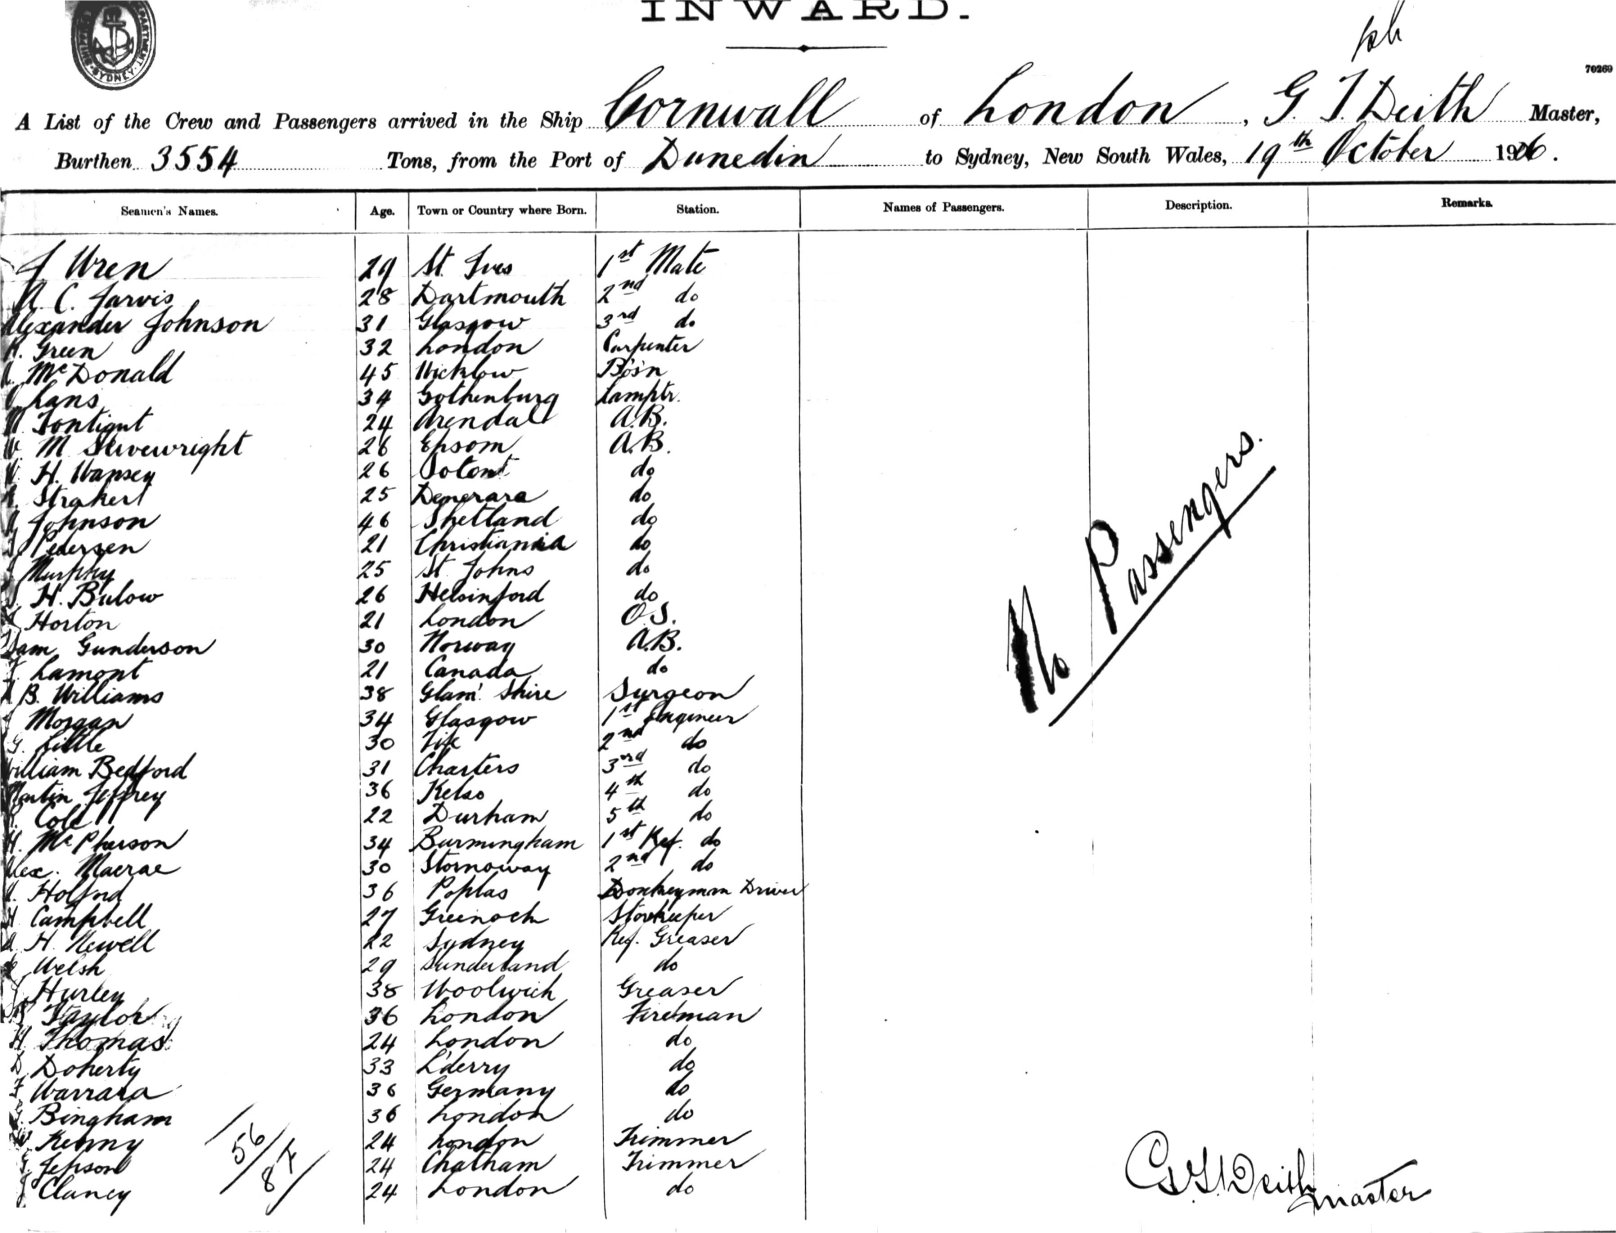 INWARD.
70269
A List of the Crew and Passengers arrived in the Ship Cornwall of London, G. T. Deith Master,
Burthen 3554 Tons, from the Port of Dunedin to Sydney, New South Wales, 19th October 1906.
Seamen's Names. Age. Town or Country where Born. Station. Names of Passengers. Description. Remarks.
J Wren 29 St. Ives 1st Mate
C. Jarvis 28 Dartmouth 2nd do
Alexander Johnson 31 Glasgow 3rd do
Green 32 London Carpenter
McDonald 45 Wicklow Bo's'n
Lans 34 Gothenburg Lamptr.
24 Arendal A.B.
M Sievewright 26 Epsom A.B.
H. Wapsey 26 do
Straker 25 Demerara do
Johnson 46 Shetland do
Pedersen 21 Christiania do
Murphy 25 St Johns do
H. Bulow 26 Helsinford do
Horton 21 London O.S.
Gunderson 30 Norway A.B.
Lamont 21 Canada do
B. Williams 38 Glam' Shire Surgeon
Morgan 34 Glasgow 1st Engineer
G. Little 30 Fife 2nd do
William Bedford 31 Charters 3rd do
Martin Jeffrey 36 Kelso 4th do
Cole 22 Durham 5th do
H. McPherson 34 Burmingham 1st Ref. do
Alex. Macrae 30 Stornoway 2nd do
Holford 36 Poplas Donkeyman Driver
Campbell 27 Greenock Storekeeper
H. Newell 22 Sydney Ref. Greaser
Welsh 29 Sunderland do
Hurley 38 Woolwich Greaser
Taylor 36 London Fireman
H. Thomas 24 London do
D. Doherty 33 L'derry do
F Warrara 36 Germany do
Bingham 36 London do
Kenny 24 London Trimmer
Jepson 24 Chatham Trimmer
J Clancy 24 London do
No Passengers.
56
G T Deith
master